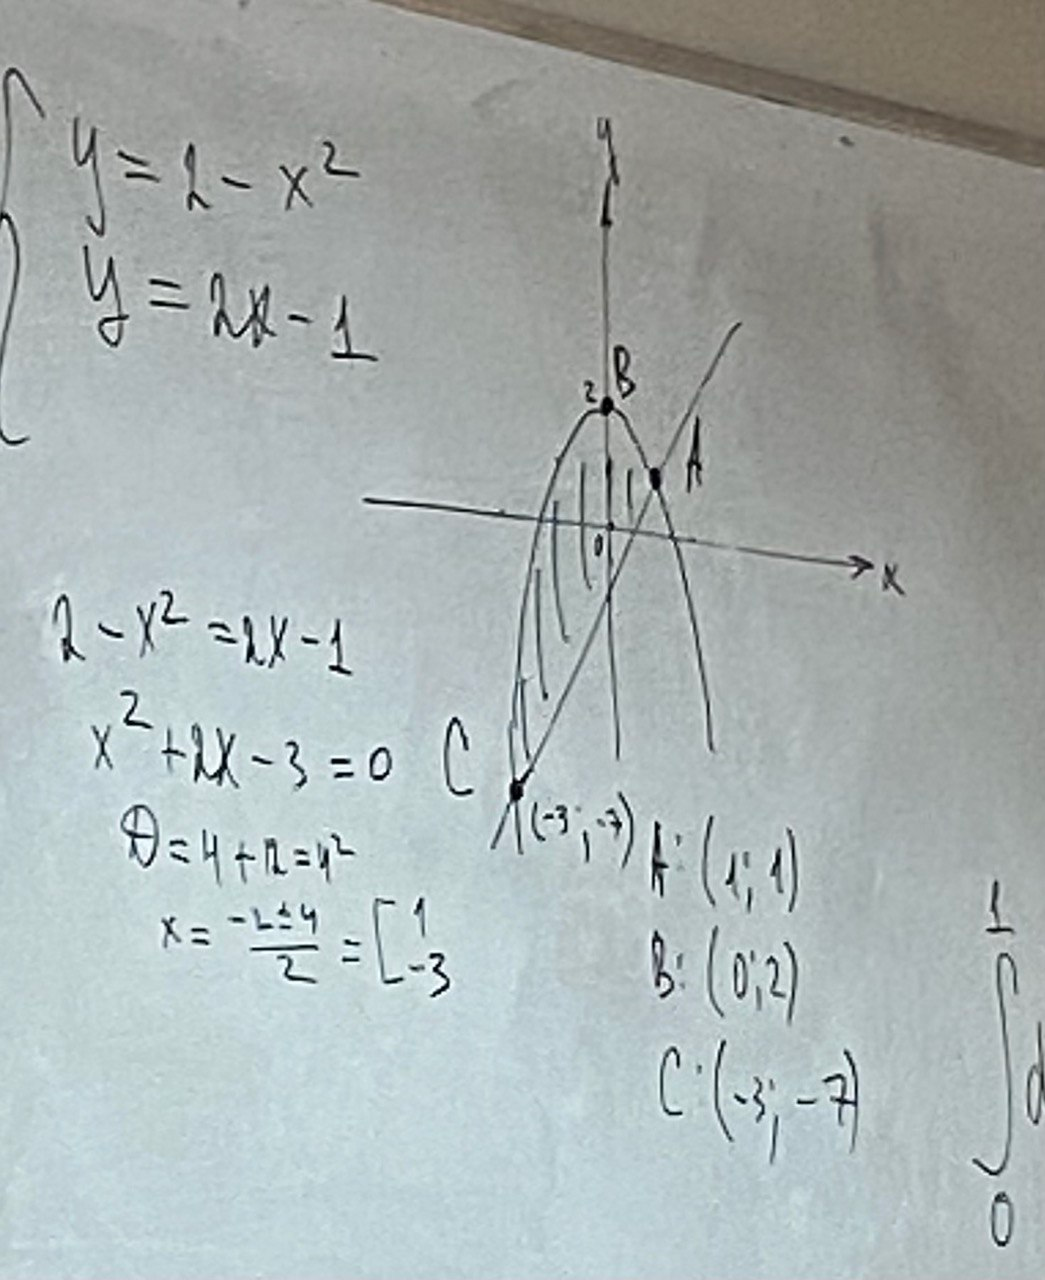 y = 2 - x²
y = 2x - 1
y
2 B
A
0
x
2 - x² = 2x - 1
x² + 2x - 3 = 0
C
(-3; -7)
D = 4 + 12 = 4²
x = (-2 ± 4)/2 = [1 -3
A: (1; 1)
B: (0; 2)
C: (-3; -7)
1
∫ d
0